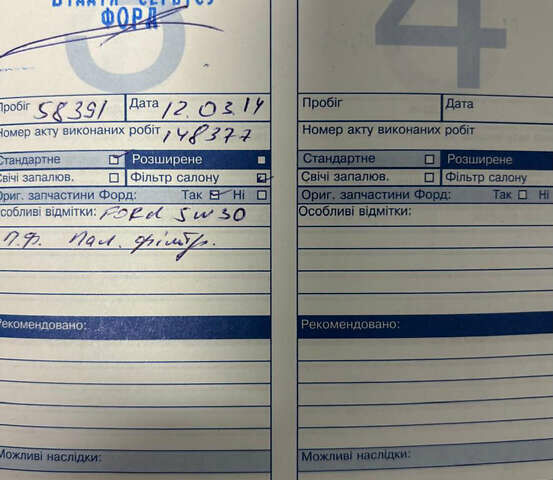 ВІДДІЛ СЕРВІСУ
ФОРД
Пробіг 58391 Дата 12.03.14
Номер акту виконаних робіт 148377
Стандартне Розширене
Свічі запалюв. Фільтр салону
Ориг. запчастини Форд: Так Ні
Особливі відмітки: FORD 5W30
П.Ф. Пал. фільтр.
Рекомендовано:
Можливі наслідки:
4
Пробіг Дата
Номер акту виконаних робіт
Стандартне Розширене
Свічі запалюв. Фільтр салону
Ориг. запчастини Форд: Так Ні
Особливі відмітки:
Рекомендовано:
Можливі наслідки: